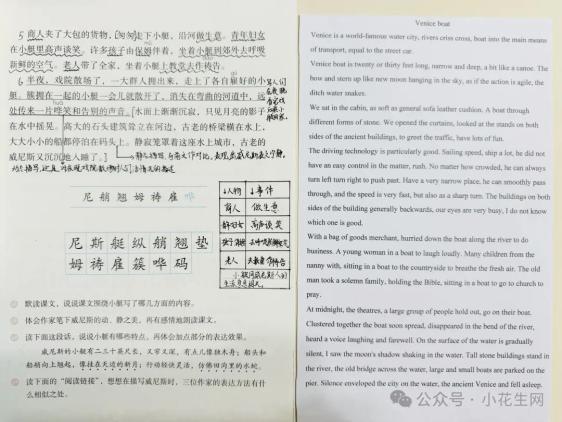 5 商人夹了大包的货物，匆匆走下小艇，沿河做生意。青年妇女
在小艇里高声谈笑。许多孩子由保姆伴着，坐着小艇到郊外去呼吸
新鲜的空气。老人带了全家，坐着小艇上教堂去作祷告。
6 半夜，戏院散场了，一大群人拥出来，走上了各自雇好的小
艇。簇拥在一起的小艇一会儿就散开了，消失在弯曲的河道中，远
处传来一片哗笑和告别的声音。水面上渐渐沉寂，只见月亮的影子
在水中摇晃。高大的石头建筑耸立在河边，古老的桥梁横在水上，
大大小小的船都停泊在码头上。静寂笼罩着这座水上城市，古老的
威尼斯又沉沉地入睡了。
尼 艄 翘 姆 祷 雇 哗
尼 斯 艇 纵 艄 翘 垫
姆 祷 雇 簇 哗 码
人物 事件
商人 做生意
高声谈笑
老人
默读课文，说说课文围绕小艇写了哪几方面的内容。
体会作家笔下威尼斯的动、静之美，再有感情地朗读课文。
读下面这段话，说说小艇有哪些特点，再体会加点部分的表达效果。
威尼斯的小艇有二三十英尺长，又窄又深，有点儿像独木舟；船头和
船艄向上翘起，像挂在天边的新月；行动轻快灵活，仿佛田沟里的水蛇。
读下面的“阅读链接”，想想在描写威尼斯时，三位作家的表达方法有什
么相似之处。
Venice boat
Venice is a world-famous water city, rivers criss cross, boat into the main means
of transport, equal to the street car.
Venice boat is twenty or thirty feet long, narrow and deep, a bit like a canoe. The
bow and stern up like new moon hanging in the sky, as if the action is agile, the
ditch water snakes.
We sat in the cabin, as soft as general sofa leather cushion. A boat through
different forms of stone. We opened the curtains, looked at the stands on both
sides of the ancient buildings, to greet the traffic, have lots of fun.
The driving technology is particularly good. Sailing speed, ship a lot, he did not
have an easy control in the matter, rush. No matter how crowded, he can always
turn left turn right to push past. Have a very narrow place, he can smoothly pass
through, and the speed is very fast, but also as a sharp turn. The buildings on both
sides of the building generally backwards, our eyes are very busy, I do not know
which one is good.
With a bag of goods merchant, hurried down along the river to do
business. A young woman in a boat to laugh loudly. Many children from the
nanny with, sitting in a boat to the countryside to breathe the fresh air. The old
man took a solemn family, holding the Bible, sitting in a boat to go to church to
pray.
At midnight, the theatres, a large group of people hold out, go on their boat.
Clustered together the boat soon spread, disappeared in the bend of the river,
heard a voice laughing and farewell. On the surface of the water is gradually
silent, I saw the moon's shadow shaking in the water. Tall stone buildings stand in
the river, the old bridge across the water, large and small boats are parked on the
pier. Silence enveloped the city on the water, the ancient Venice and fell asleep.
公众号·小花生网